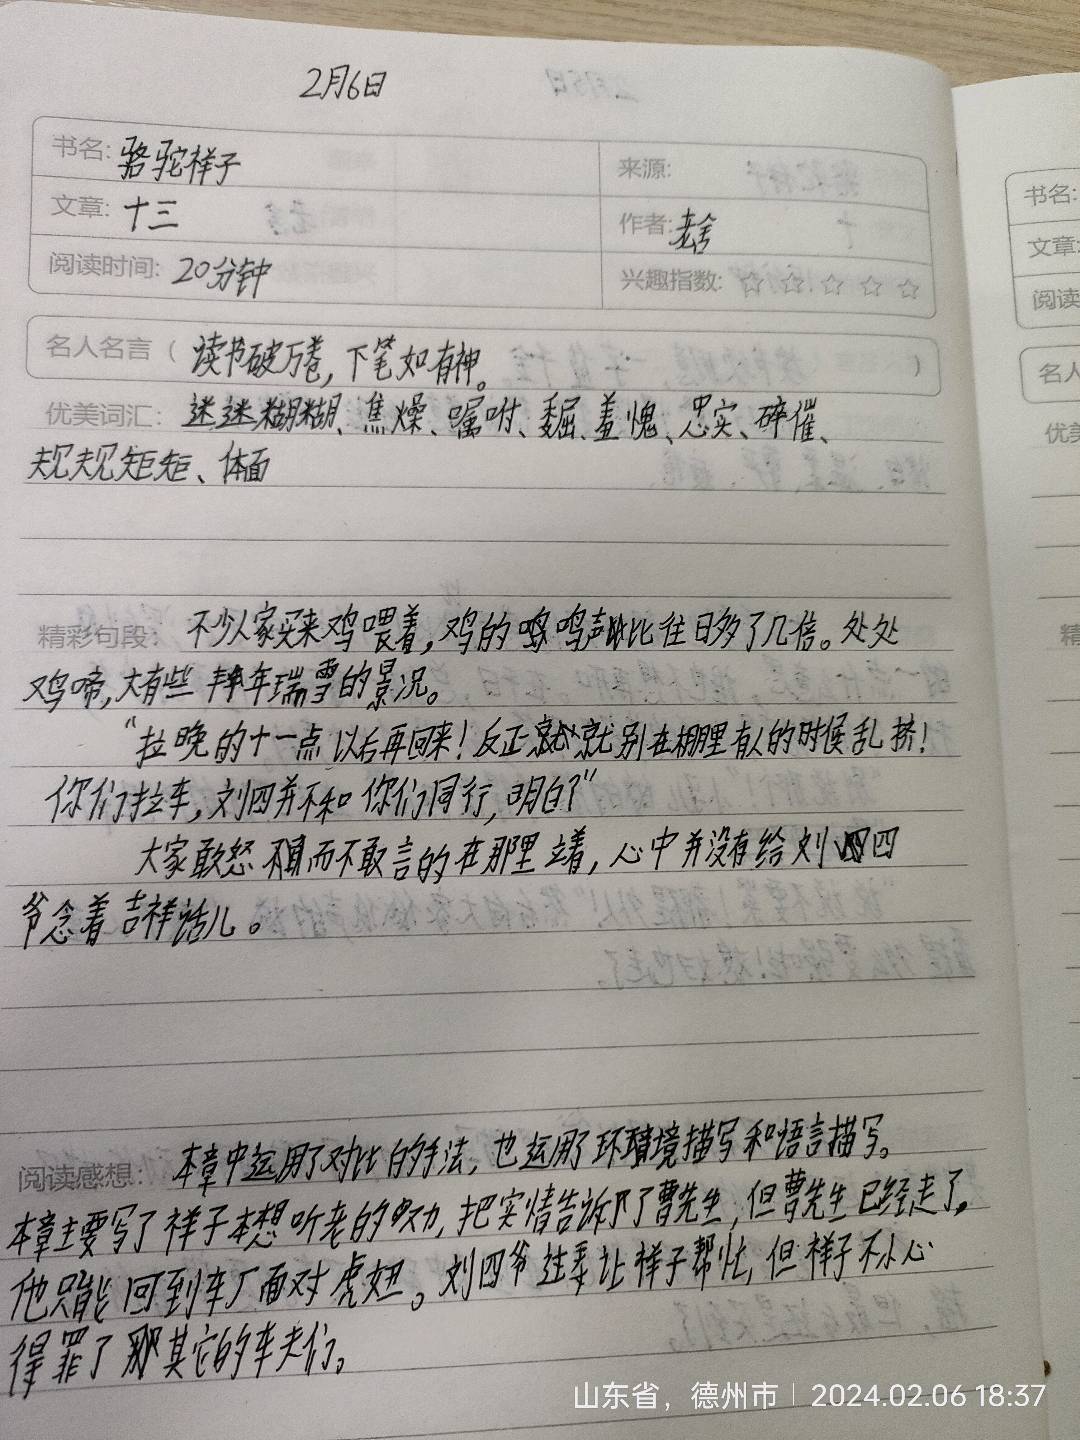 2月6日
书名: 骆驼祥子
来源:
文章: 十三
作者: 老舍
阅读时间: 20分钟
兴趣指数: ☆ ☆ ☆ ☆ ☆
名人名言（ 读书破万卷，下笔如有神。 ）
优美词汇: 迷迷糊糊、焦燥、嘱咐、委屈、羞愧、忠实、碎催、
规规矩矩、体面
精彩句段: 不少人家买来鸡喂着，鸡的鸣声比往日多了几倍。处处
鸡啼，大有些丰年瑞雪的景况。
“拉晚的十一点以后再回来！反正就别在棚里有人的时候乱挤！
你们拉车，刘四并不和你们同行，明白？”
大家敢怒而不敢言的在那里立着，心中并没有给刘四
爷念着吉祥话儿。
阅读感想: 本章中运用了对比的手法，也运用了环境描写和语言描写。
本章主要写了祥子本想听老的劝，把实情告诉了曹先生，但曹先生已经走了。
他只能回到车厂面对虎妞。刘四爷让祥子帮忙，但祥子不小心
得罪了其它的车夫们。
书名:
文章:
阅读
名人
优美
精
山东省，德州市 | 2024.02.06 18:37